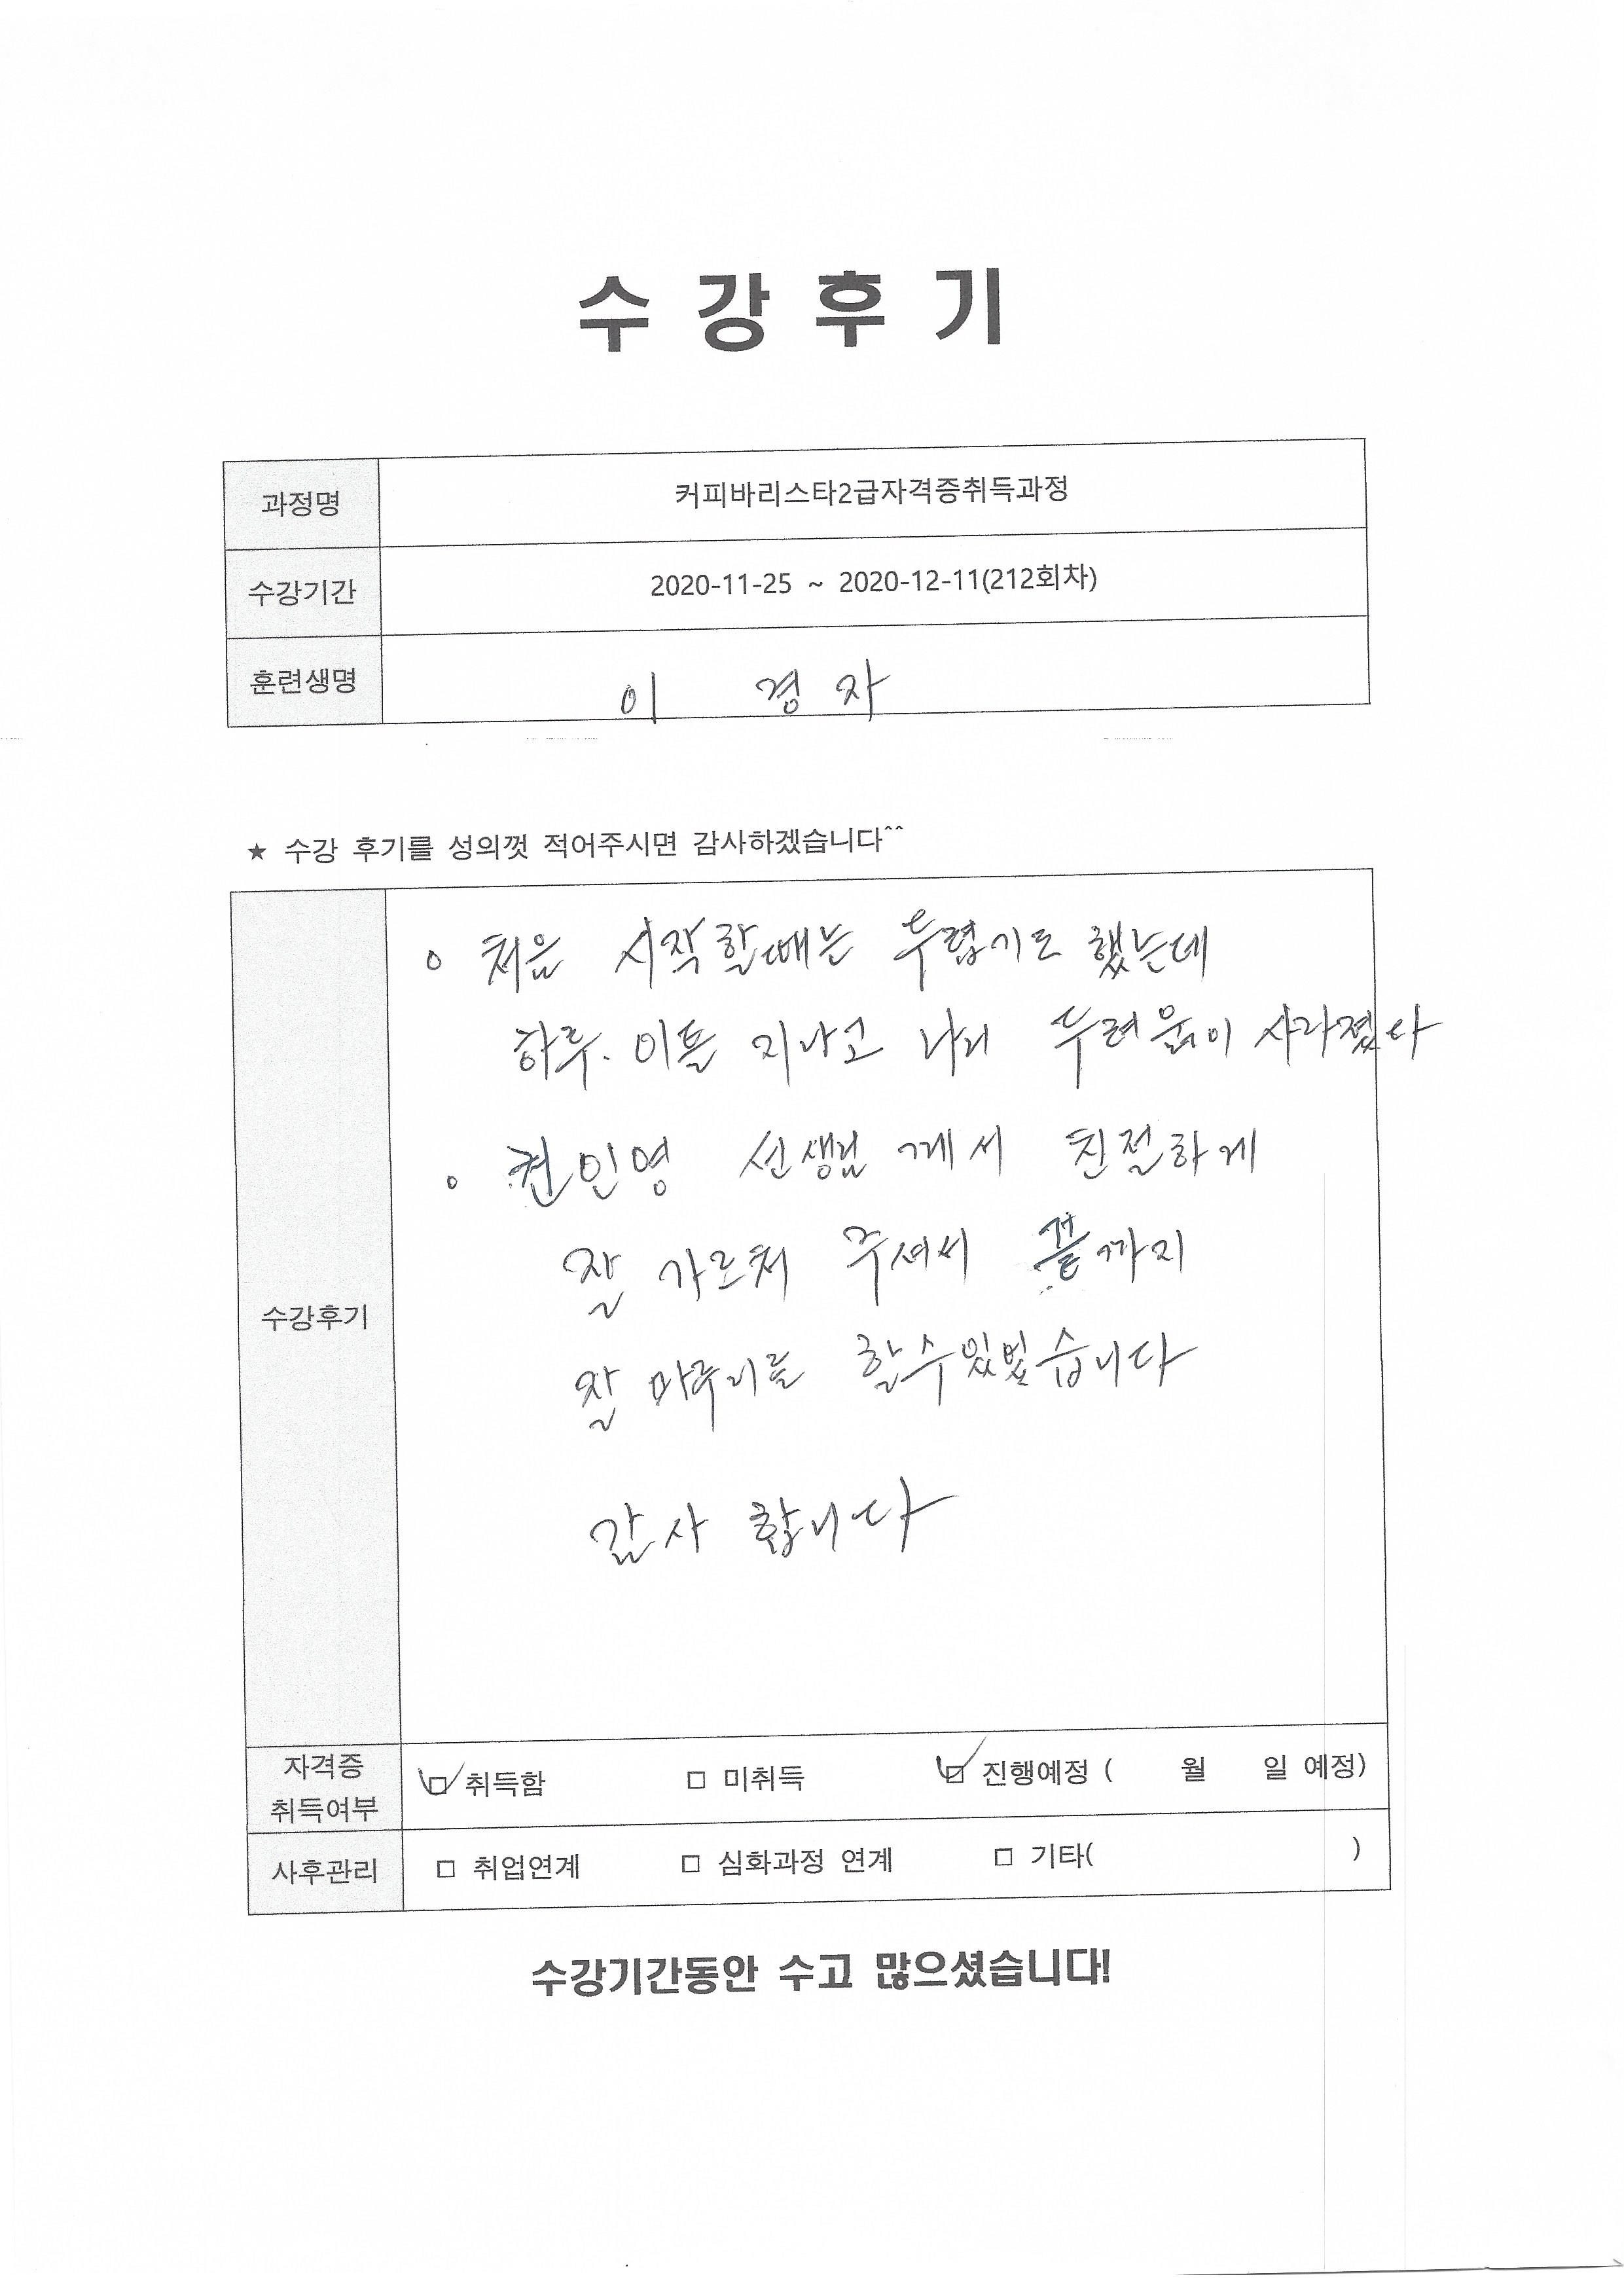 수 강 후 기
과정명 커피바리스타2급자격증취득과정
수강기간 2020-11-25 ~ 2020-12-11(212회차)
훈련생명 이 경 자
★ 수강 후기를 성의껏 적어주시면 감사하겠습니다^^
수강후기
o 처음 시작할때는 두렵기도 했는데
하루. 이틀 지나고 나니 두려움이 사라졌다
o 권인영 선생님 께서 친절하게
잘 가르쳐 주셔서 끝까지
잘 마무리를 할수있었습니다
감사 합니다
자격증
취득여부
☑ 취득함 □ 미취득 ☑ 진행예정 ( 월 일 예정)
사후관리 □ 취업연계 □ 심화과정 연계 □ 기타( )
수강기간동안 수고 많으셨습니다!